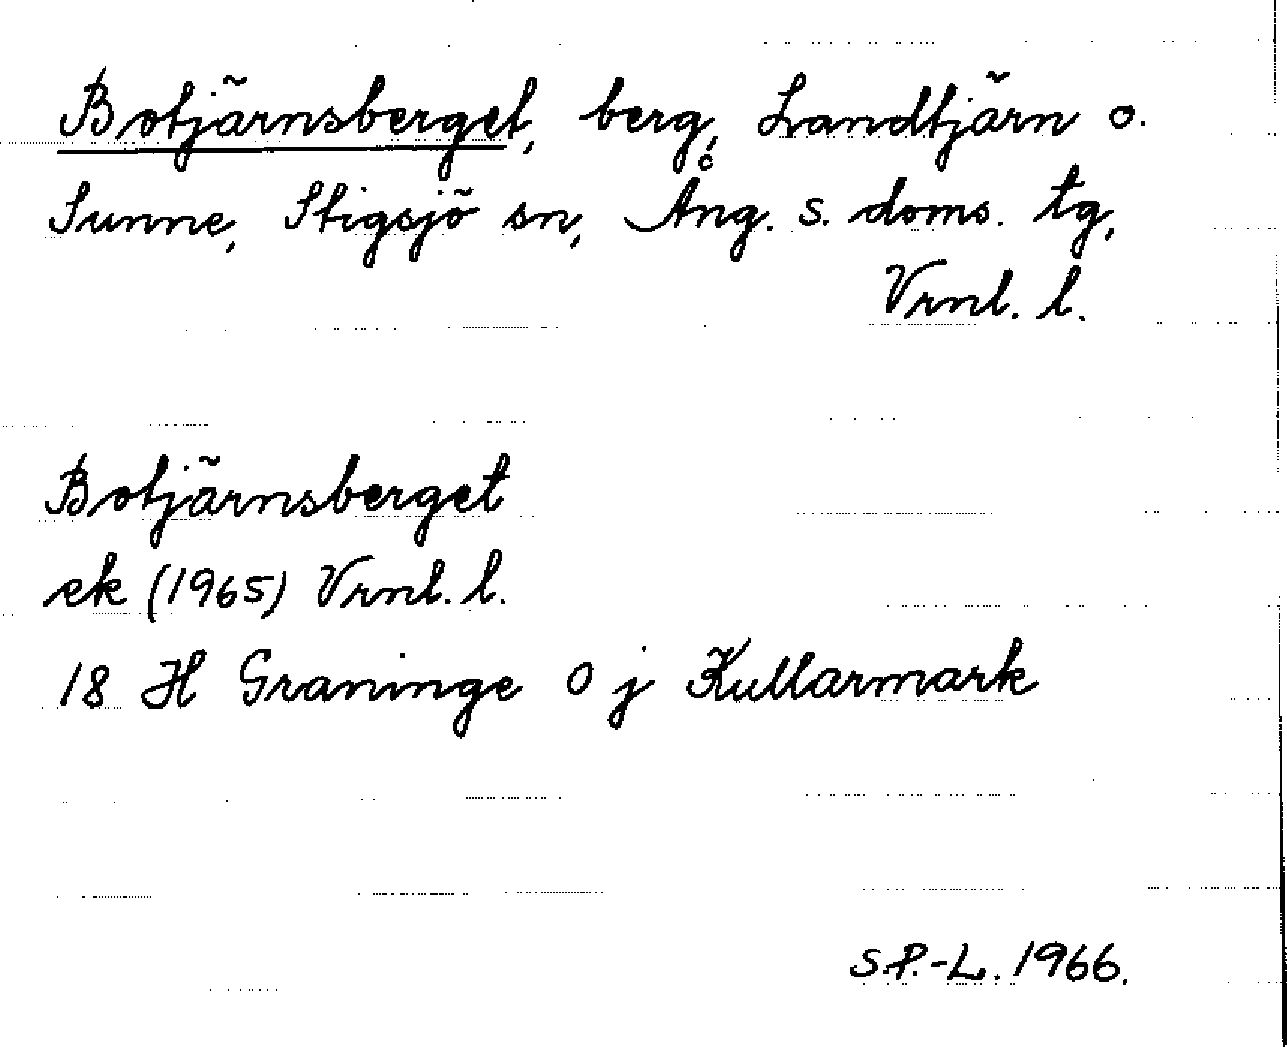 Botjärnsberget, berg, Landtjärn o.
Sunne, Stigsjö sn, Ång. s. doms. tg,
Vrnl. l.
Botjärnsberget
ek (1965) Vrnl. l.
18 H Graninge O j Kullarmark
S.P.-L. 1966.